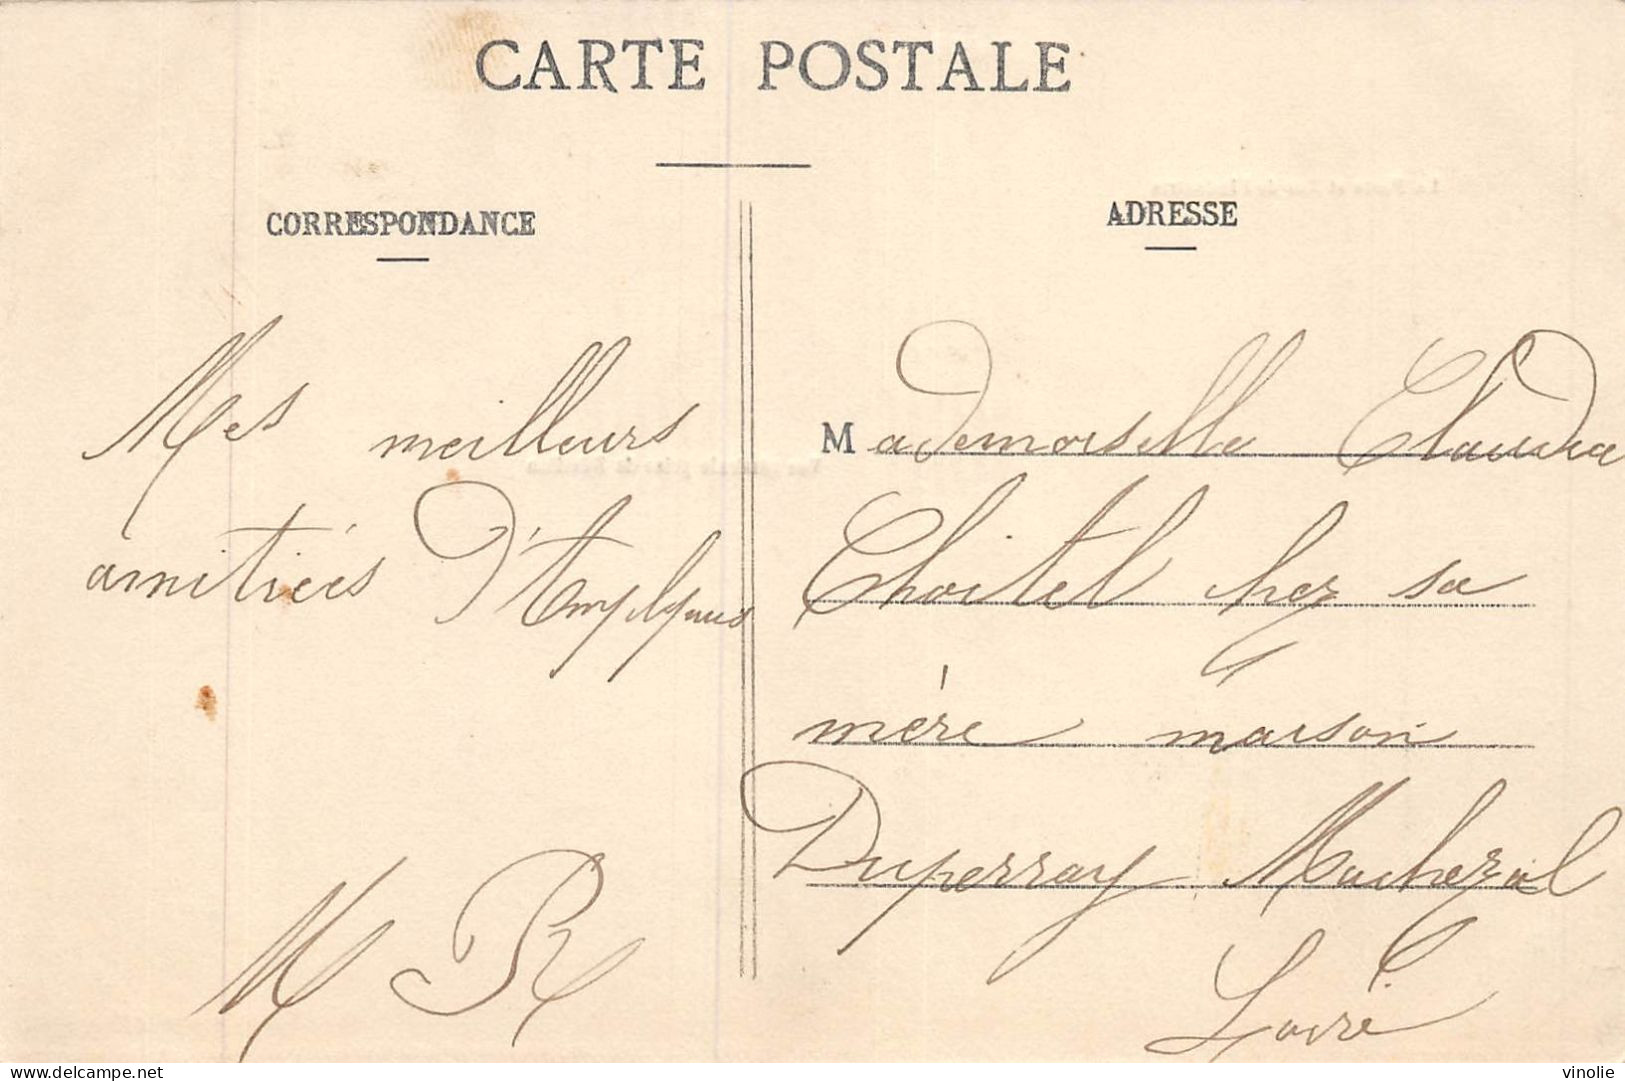 CARTE POSTALE
CORRESPONDANCE
Mes meilleurs
amitiés d'Amplepuis
M R
ADRESSE
Mademoiselle Claudia
Choitel chez sa
mère maison
Duperray Machezal
Loire
delcampe.net
vinolie